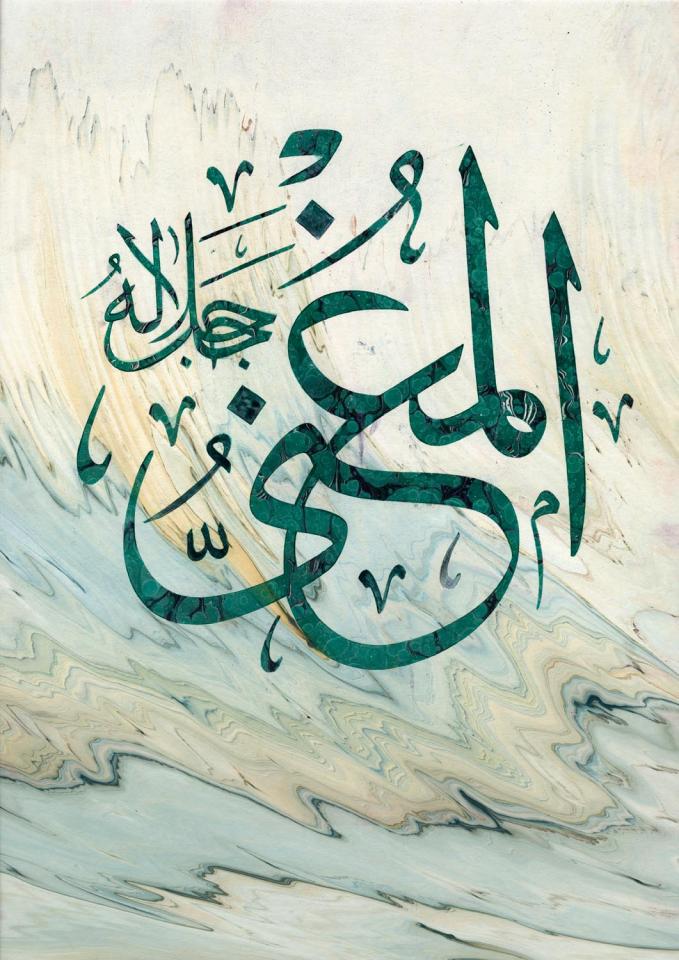 المغنى
جل جلاله